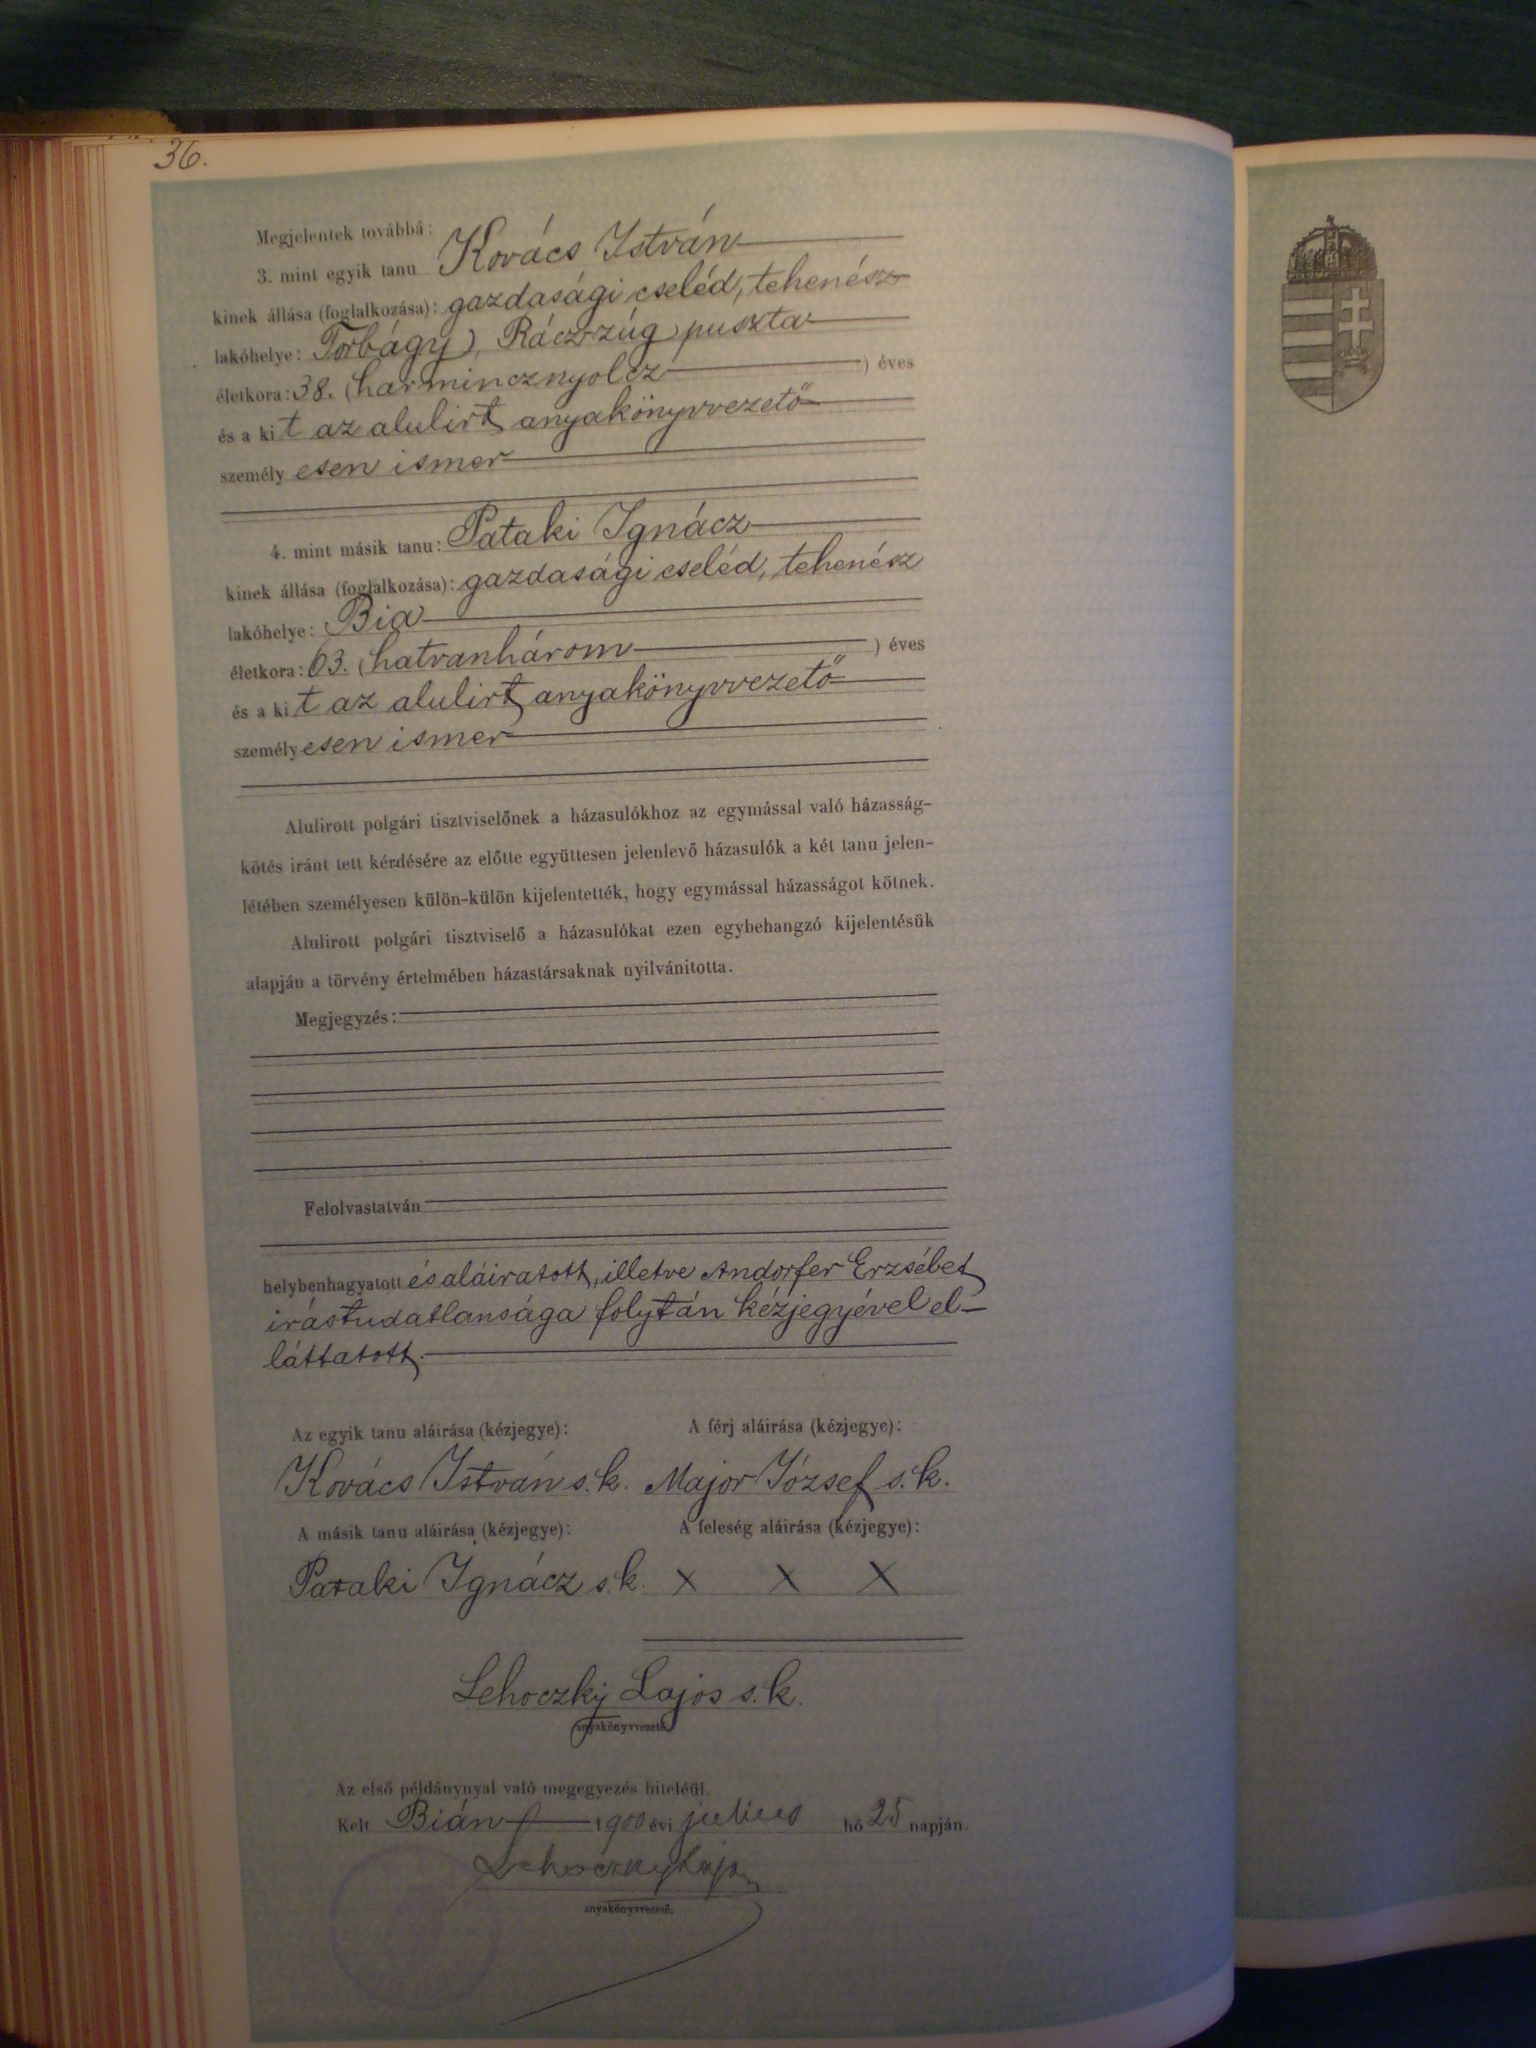 36.
Megjelentek továbbá:
3. mint egyik tanu Kovács István
kinek állása (foglalkozása): gazdasági cseléd, tehenész
lakóhelye: Torbágy, Ráczzúg puszta
életkora: 38. (harmincznyolcz ) éves
és a kit az alulirt anyakönyvvezető
személyesen ismer
4. mint másik tanu: Pataki Ignácz
kinek állása (foglalkozása): gazdasági cseléd, tehenész
lakóhelye: Bia
életkora: 63. (hatvanhárom ) éves
és a kit az alulirt anyakönyvvezető
személyesen ismer
Alulirott polgári tisztviselőnek a házasulókhoz az egymással való házasság-
kötés iránt tett kérdésére az előtte együttesen jelenlevő házasulók a két tanu jelen-
létében személyesen külön-külön kijelentették, hogy egymással házasságot kötnek.
Alulirott polgári tisztviselő a házasulókat ezen egybehangzó kijelentésük
alapján a törvény értelmében házastársaknak nyilvánitotta.
Megjegyzés:
Felolvastatván
helybenhagyatott és aláiratott, illetve Andorfer Erzsébet
irástudatlansága folytán kézjegyével el-
láttatott.
Az egyik tanu aláirása (kézjegye): A férj aláirása (kézjegye):
Kovács István s.k. Major József s.k.
A másik tanu aláirása (kézjegye): A feleség aláirása (kézjegye):
Pataki Ignácz s.k. X X X
Lehoczky Lajos s.k.
anyakönyvvezető.
Az első példánynyal való megegyezés hiteléül.
Kelt Bián 1900 évi julius hó 25 napján.
Lehoczky Lajos
anyakönyvvezető.